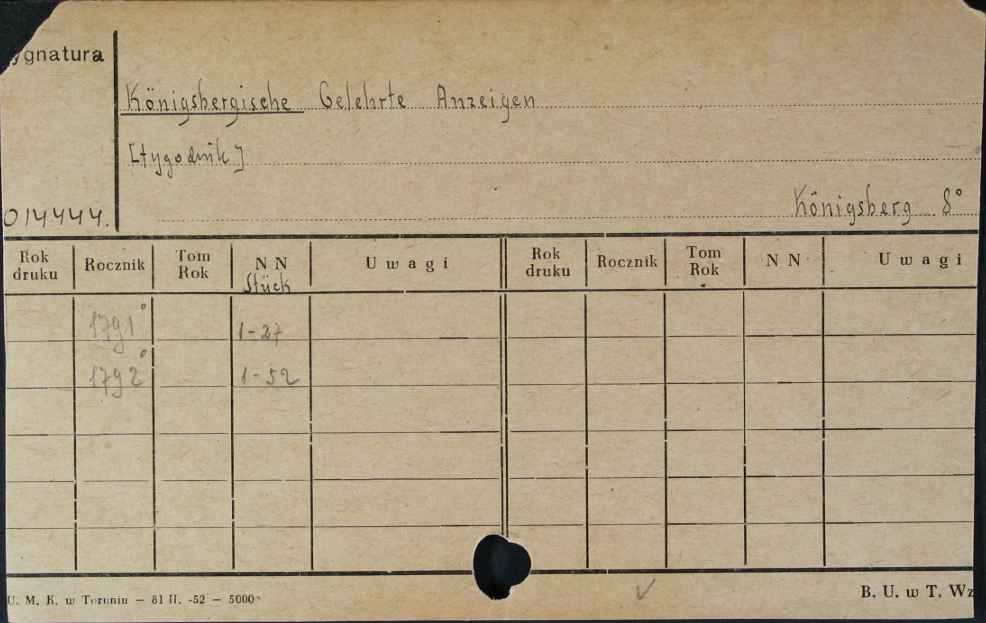 ygnatura
Königsbergische Gelehrte Anzeigen
[tygodnik]
014444.
Königsberg 8°
Rok druku Rocznik Tom Rok NN Stück Uwagi Rok druku Rocznik Tom Rok NN Uwagi
1791° 1-27
1792° 1-52
U. M. K. w Toruniu — 81 II. -52 — 5000
B. U. w T. Wz